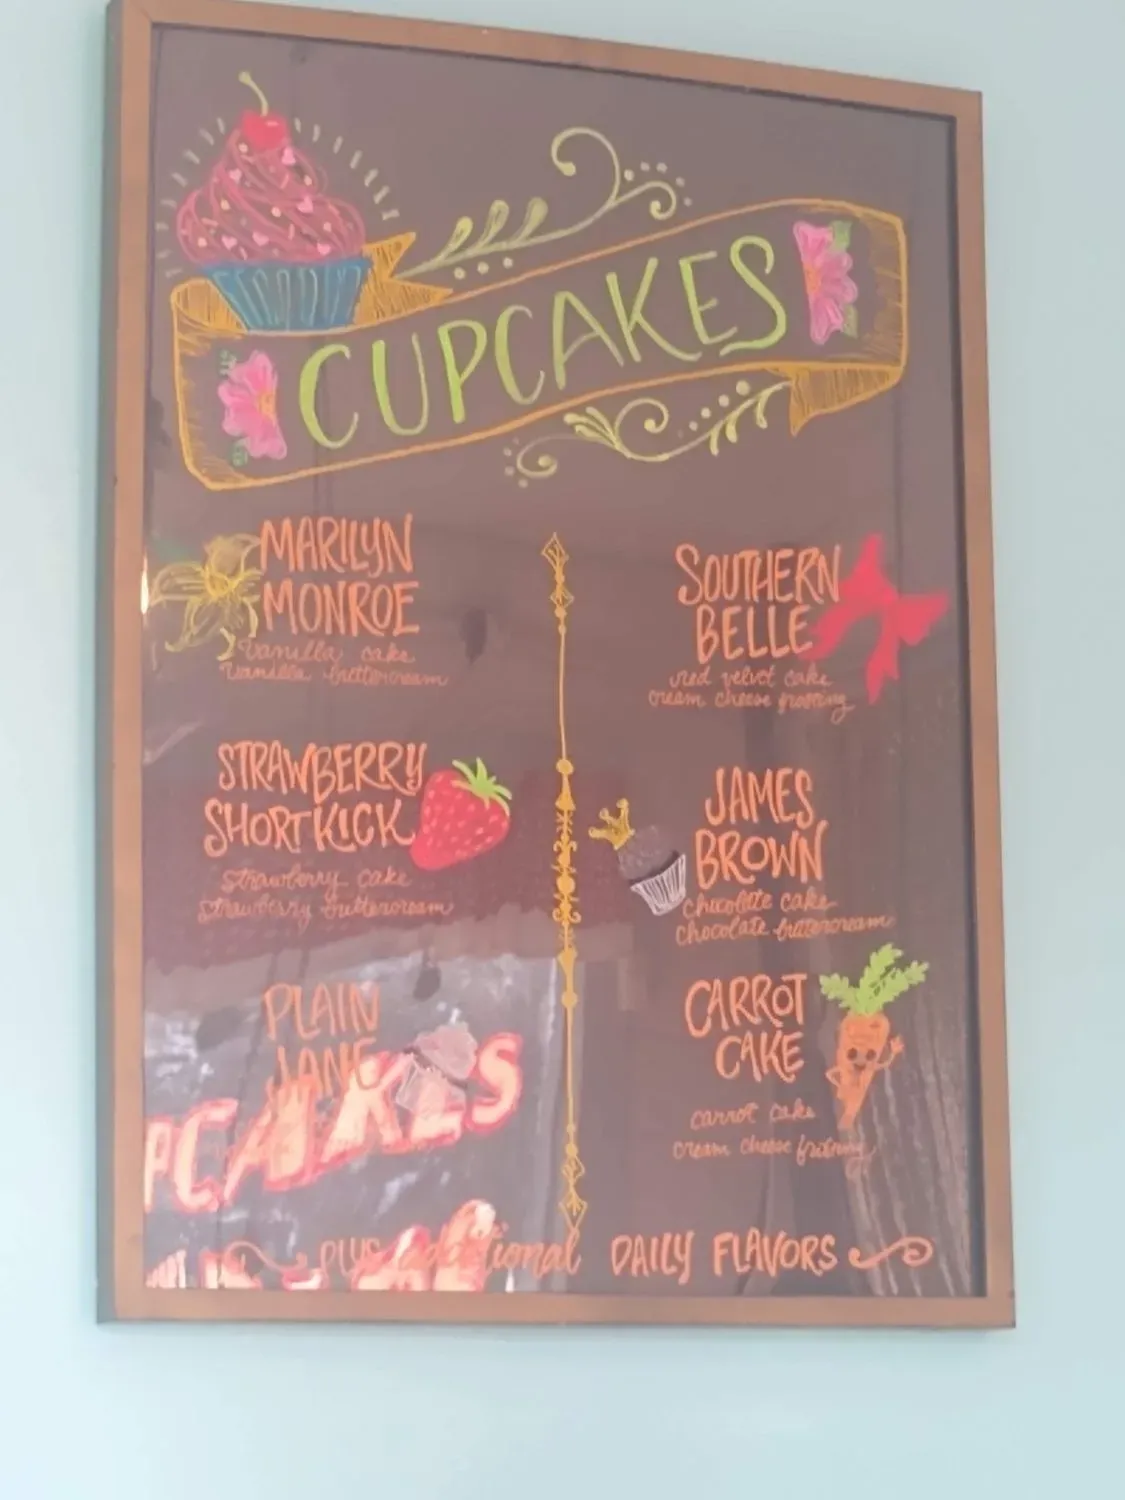 CUPCAKES
MARILYN
MONROE
Vanilla cake
Vanilla buttercream
STRAWBERRY
SHORTKICK
Strawberry cake
Strawberry buttercream
PLAIN
JANE
SOUTHERN
BELLE
red velvet cake
cream cheese frosting
JAMES
BROWN
chocolate cake
chocolate buttercream
CARROT
CAKE
carrot cake
cream cheese frosting
PLUS additional DAILY FLAVORS
PCAKES